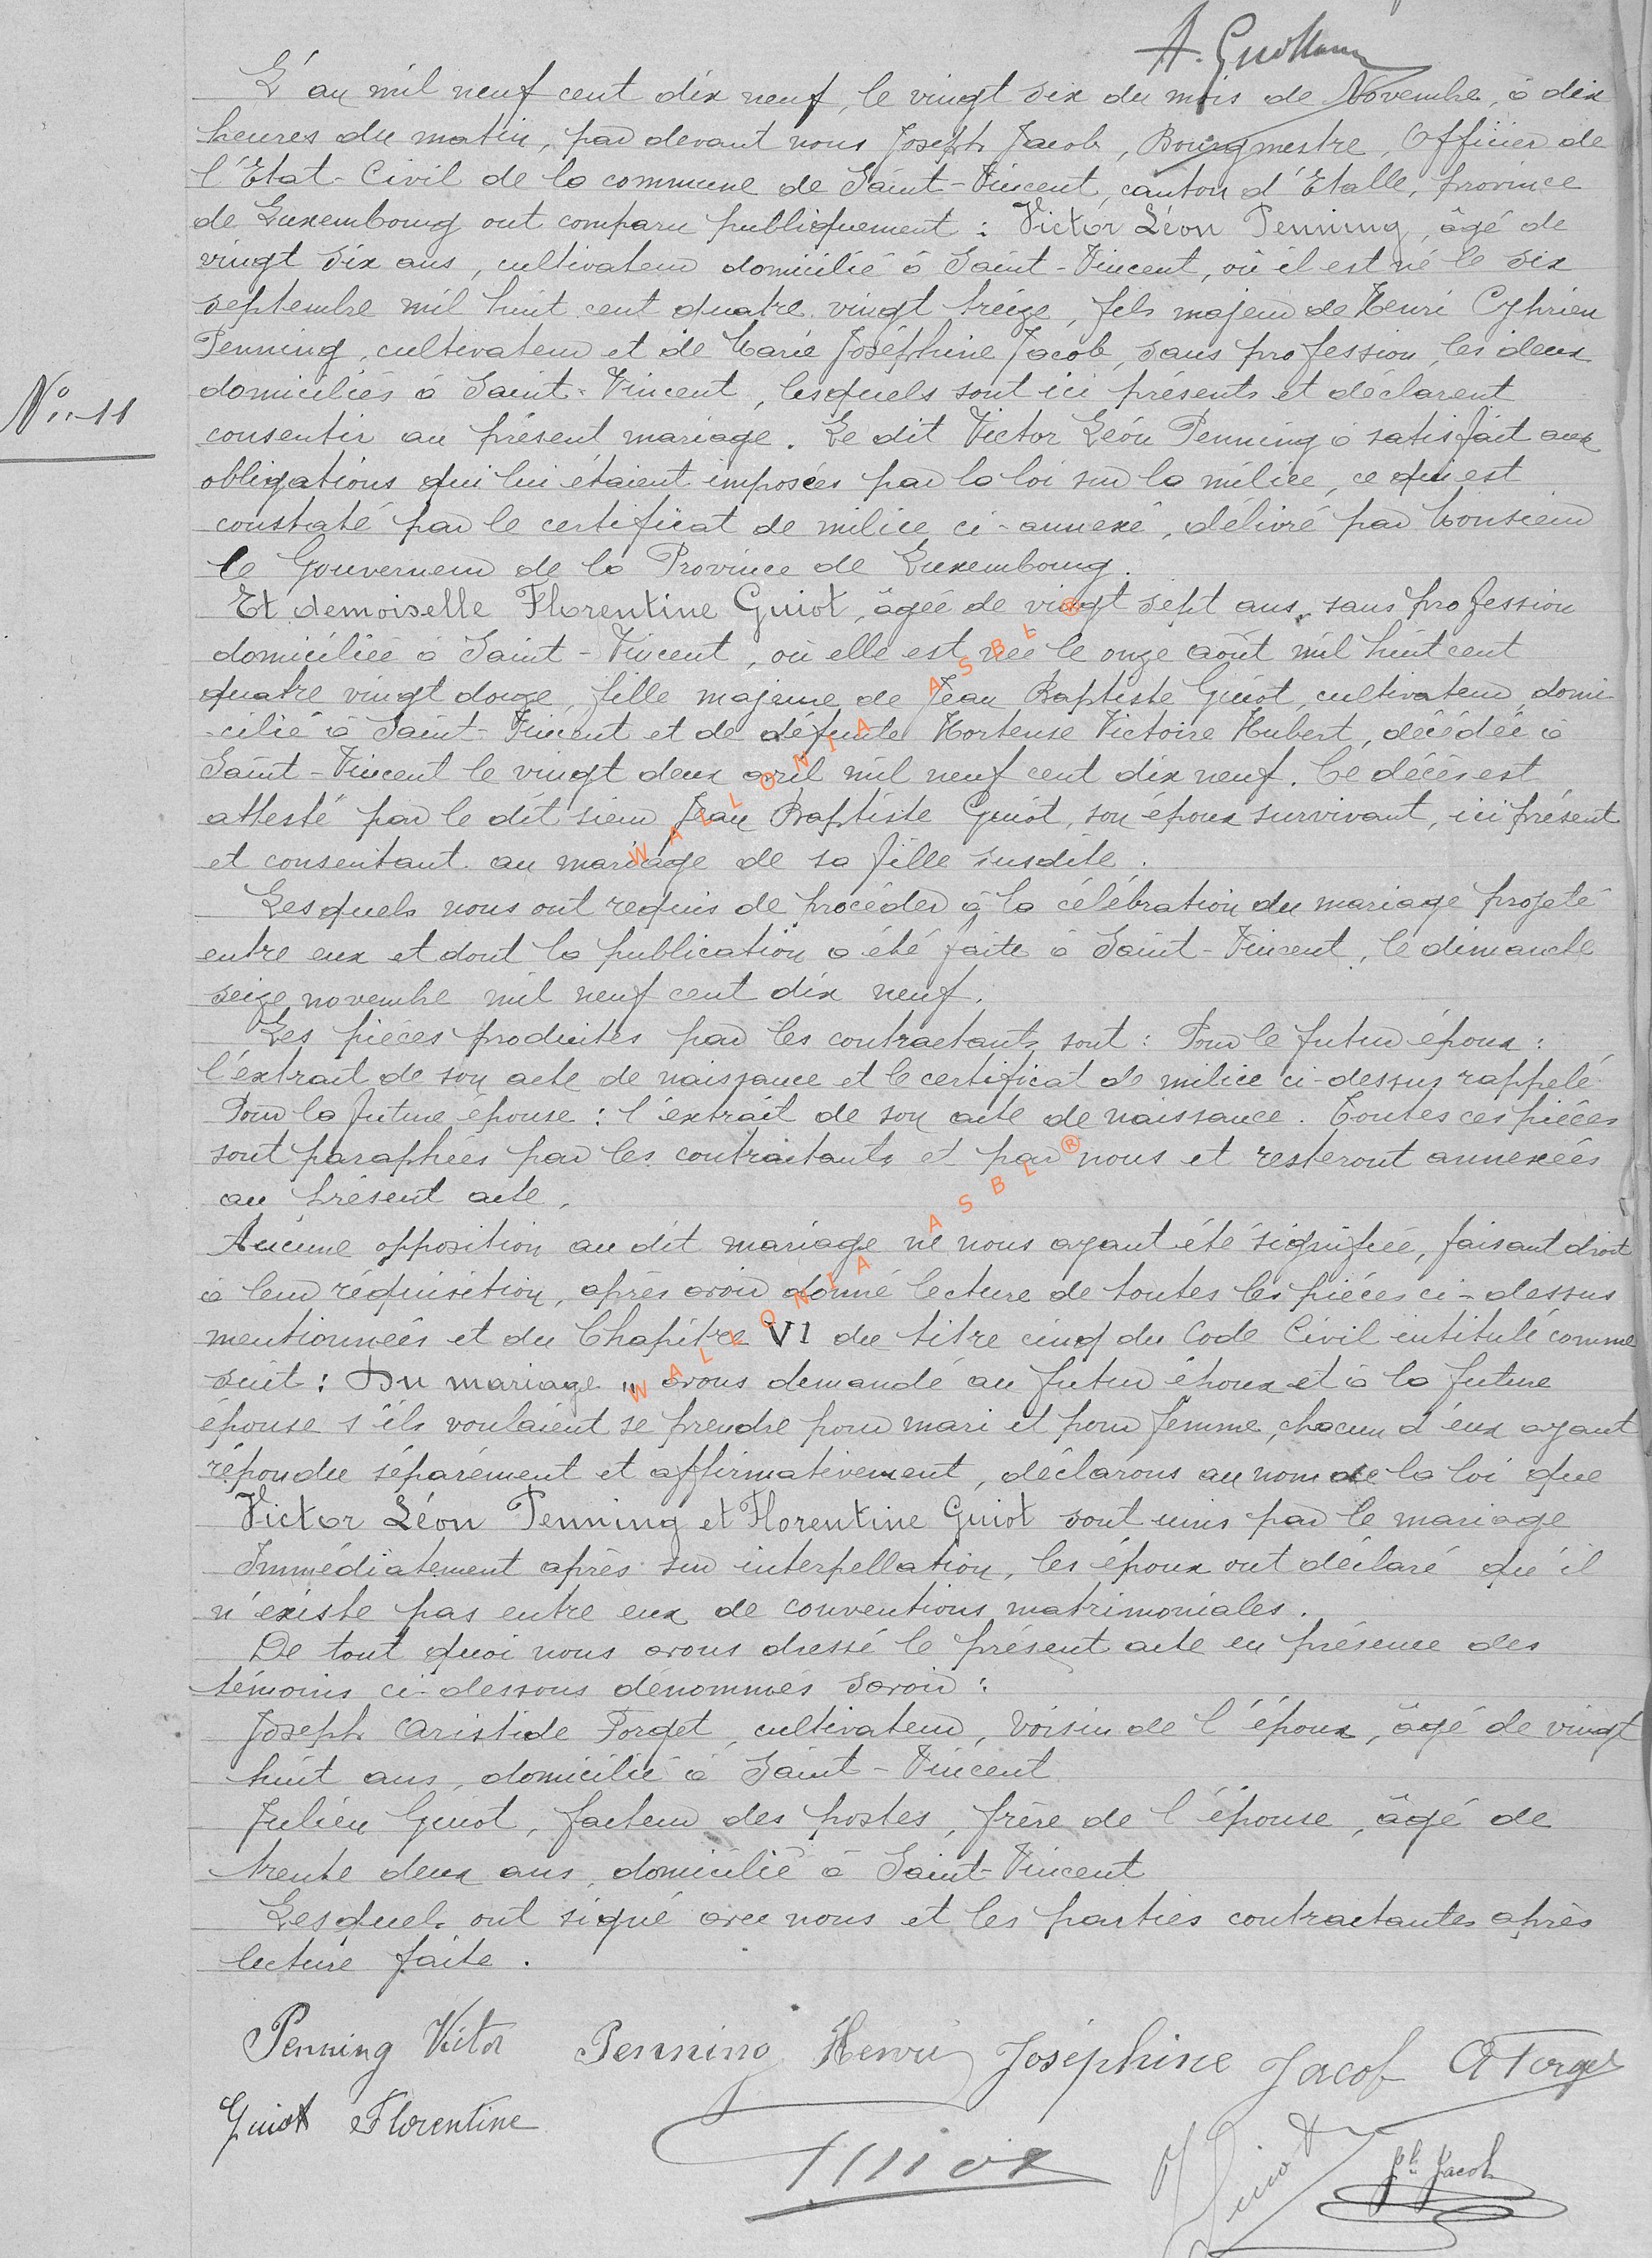 L'an mil neuf cent dix neuf, le vingt six du mois de Novembre, à dix
heures du matin, par devant nous Joseph Jacob, Bourgmestre, Officier de
l'Etat-Civil de la commune de Saint-Vincent, canton d'Etalle, province
de Luxembourg ont comparu publiquement : Victor Léon Penning, âgé de
vingt six ans, cultivateur domicilié à Saint-Vincent, où il est né le six
septembre mil huit cent quatre vingt treize, fils majeur de Henri Cyprien
Penning, cultivateur et de Marie Joséphine Jacob, sans profession, les deux
domiciliés à Saint-Vincent, lesquels sont ici présents et déclarent
N° 11
consentir au présent mariage. Le dit Victor Léon Penning a satisfait aux
obligations qui lui étaient imposées par la loi sur la milice, ce qui est
constaté par le certificat de milice ci-annexé, délivré par Monsieur
le Gouverneur de la Province de Luxembourg.
Et demoiselle Florentine Guiot, âgée de vingt sept ans, sans profession
domiciliée à Saint-Vincent, où elle est née le onze août mil huit cent
quatre vingt douze, fille majeure de Jean Baptiste Guiot, cultivateur, domi-
-cilié à Saint-Vincent et de défunte Hortense Victoire Hubert, décédée à
Saint-Vincent le vingt deux avril mil neuf cent dix neuf. Ce décès est
attesté par le dit sieur Jean Baptiste Guiot, son époux survivant, ici présent
et consentant au mariage de sa fille susdite.
Lesquels nous ont requis de procéder à la célébration du mariage projeté
entre eux et dont la publication a été faite à Saint-Vincent, le dimanche
seize novembre mil neuf cent dix neuf.
Les pièces produites par les contractants sont : Pour le futur époux :
l'extrait de son acte de naissance et le certificat de milice ci-dessus rappelé
Pour la future épouse : l'extrait de son acte de naissance. Toutes ces pièces
sont paraphées par les contractants et par nous et resteront annexées
au présent acte.
Aucune opposition au dit mariage ne nous ayant été signifiée, faisant droit
à leur réquisition, après avoir donné lecture de toutes les pièces ci-dessus
mentionnées et du Chapitre VI du titre cinq du Code Civil intitulé comme
suit : Du mariage " avons demandé au futur époux et à la future
épouse s'ils voulaient se prendre pour mari et pour femme, chacun d'eux ayant
répondu séparément et affirmativement, déclarons au nom de la loi que
Victor Léon Penning et Florentine Guiot sont unis par le mariage
Immédiatement après sur interpellation, les époux ont déclaré qu'il
n'existe pas entre eux de conventions matrimoniales.
De tout quoi nous avons dressé le présent acte en présence des
témoins ci-dessous dénommés savoir :
Joseph Aristide Forget, cultivateur, voisin de l'époux, âgé de vingt
huit ans, domicilié à Saint-Vincent
Julien Guiot, facteur des postes, frère de l'épouse, âgé de
trente deux ans, domicilié à Saint-Vincent
Lesquels ont signé avec nous et les parties contractantes après
lecture faite.
Penning Victor Penning Henri Joséphine Jacob A Forget
Guiot Florentine
Guiot J Guiot Jh Jacob
WALLONIA ASBL ®
WALLONIA ASBL ®